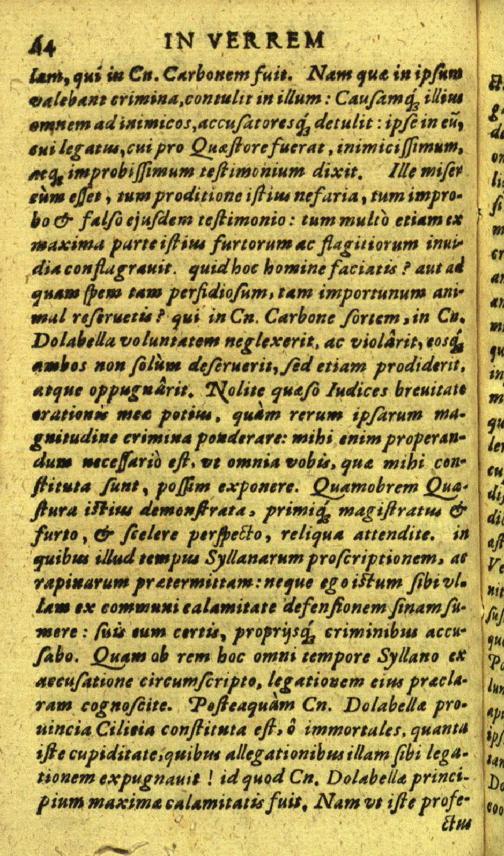 44 IN VERREM
lam, qui in Cn. Carbonem fuit. Nam quæ in ipsum
valebant crimina, contulit in illum: Causamq́; illius
omnem ad inimicos, accusatoresq́; detulit: ipse in eũ,
cui legatus, cui pro Quæstore fuerat, inimicissimum,
atq́; improbissimum testimonium dixit. Ille miser
cùm esset, tum proditione istius nefaria, tum impro-
bo & falsò ejusdem testimonio: tum multò etiam ex
maxima parte istius furtorum ac flagitiorum inui-
dia conflagrauit. quid hoc homine faciatis? aut ad
quam spem tam perfidiosum, tam importunum ani-
mal reseruetis? qui in Cn. Carbone sortem, in Cn.
Dolabella voluntatem neglexerit, ac violârit, eosq́;
ambos non solùm deseruerit, sed etiam prodiderit,
atque oppugnârit. Nolite quæsò Iudices breuitate
orationis meæ potius, quàm rerum ipsarum ma-
gnitudine crimina ponderare: mihi enim properan-
dum necessariò est, vt omnia vobis, quæ mihi con-
stituta sunt, possim exponere. Quamobrem Quæ-
stura istius demonstrata, primiq́; magistratus &
furto, & scelere perspecto, reliqua attendite. in
quibus illud tempus Syllanarum proscriptionem, ac
rapinarum prætermittam: neque ego istum sibi vl-
lam ex communi calamitate defensionem sinam su-
mere: suis eum certis, proprijsq́; criminibus accu-
sabo. Quam ob rem hoc omni tempore Syllano ex
accusatione circumscripto, legationem eius præcla-
ram cognoscite. Posteaquàm Cn. Dolabellæ pro-
uincia Cilicia constituta est, ô immortales, quanta
iste cupiditate, quibus allegationibus illam sibi lega-
tionem expugnauit! id quod Cn. Dolabellæ princi-
pium maximæ calamitatis fuit. Nam vt iste profe-
ctus